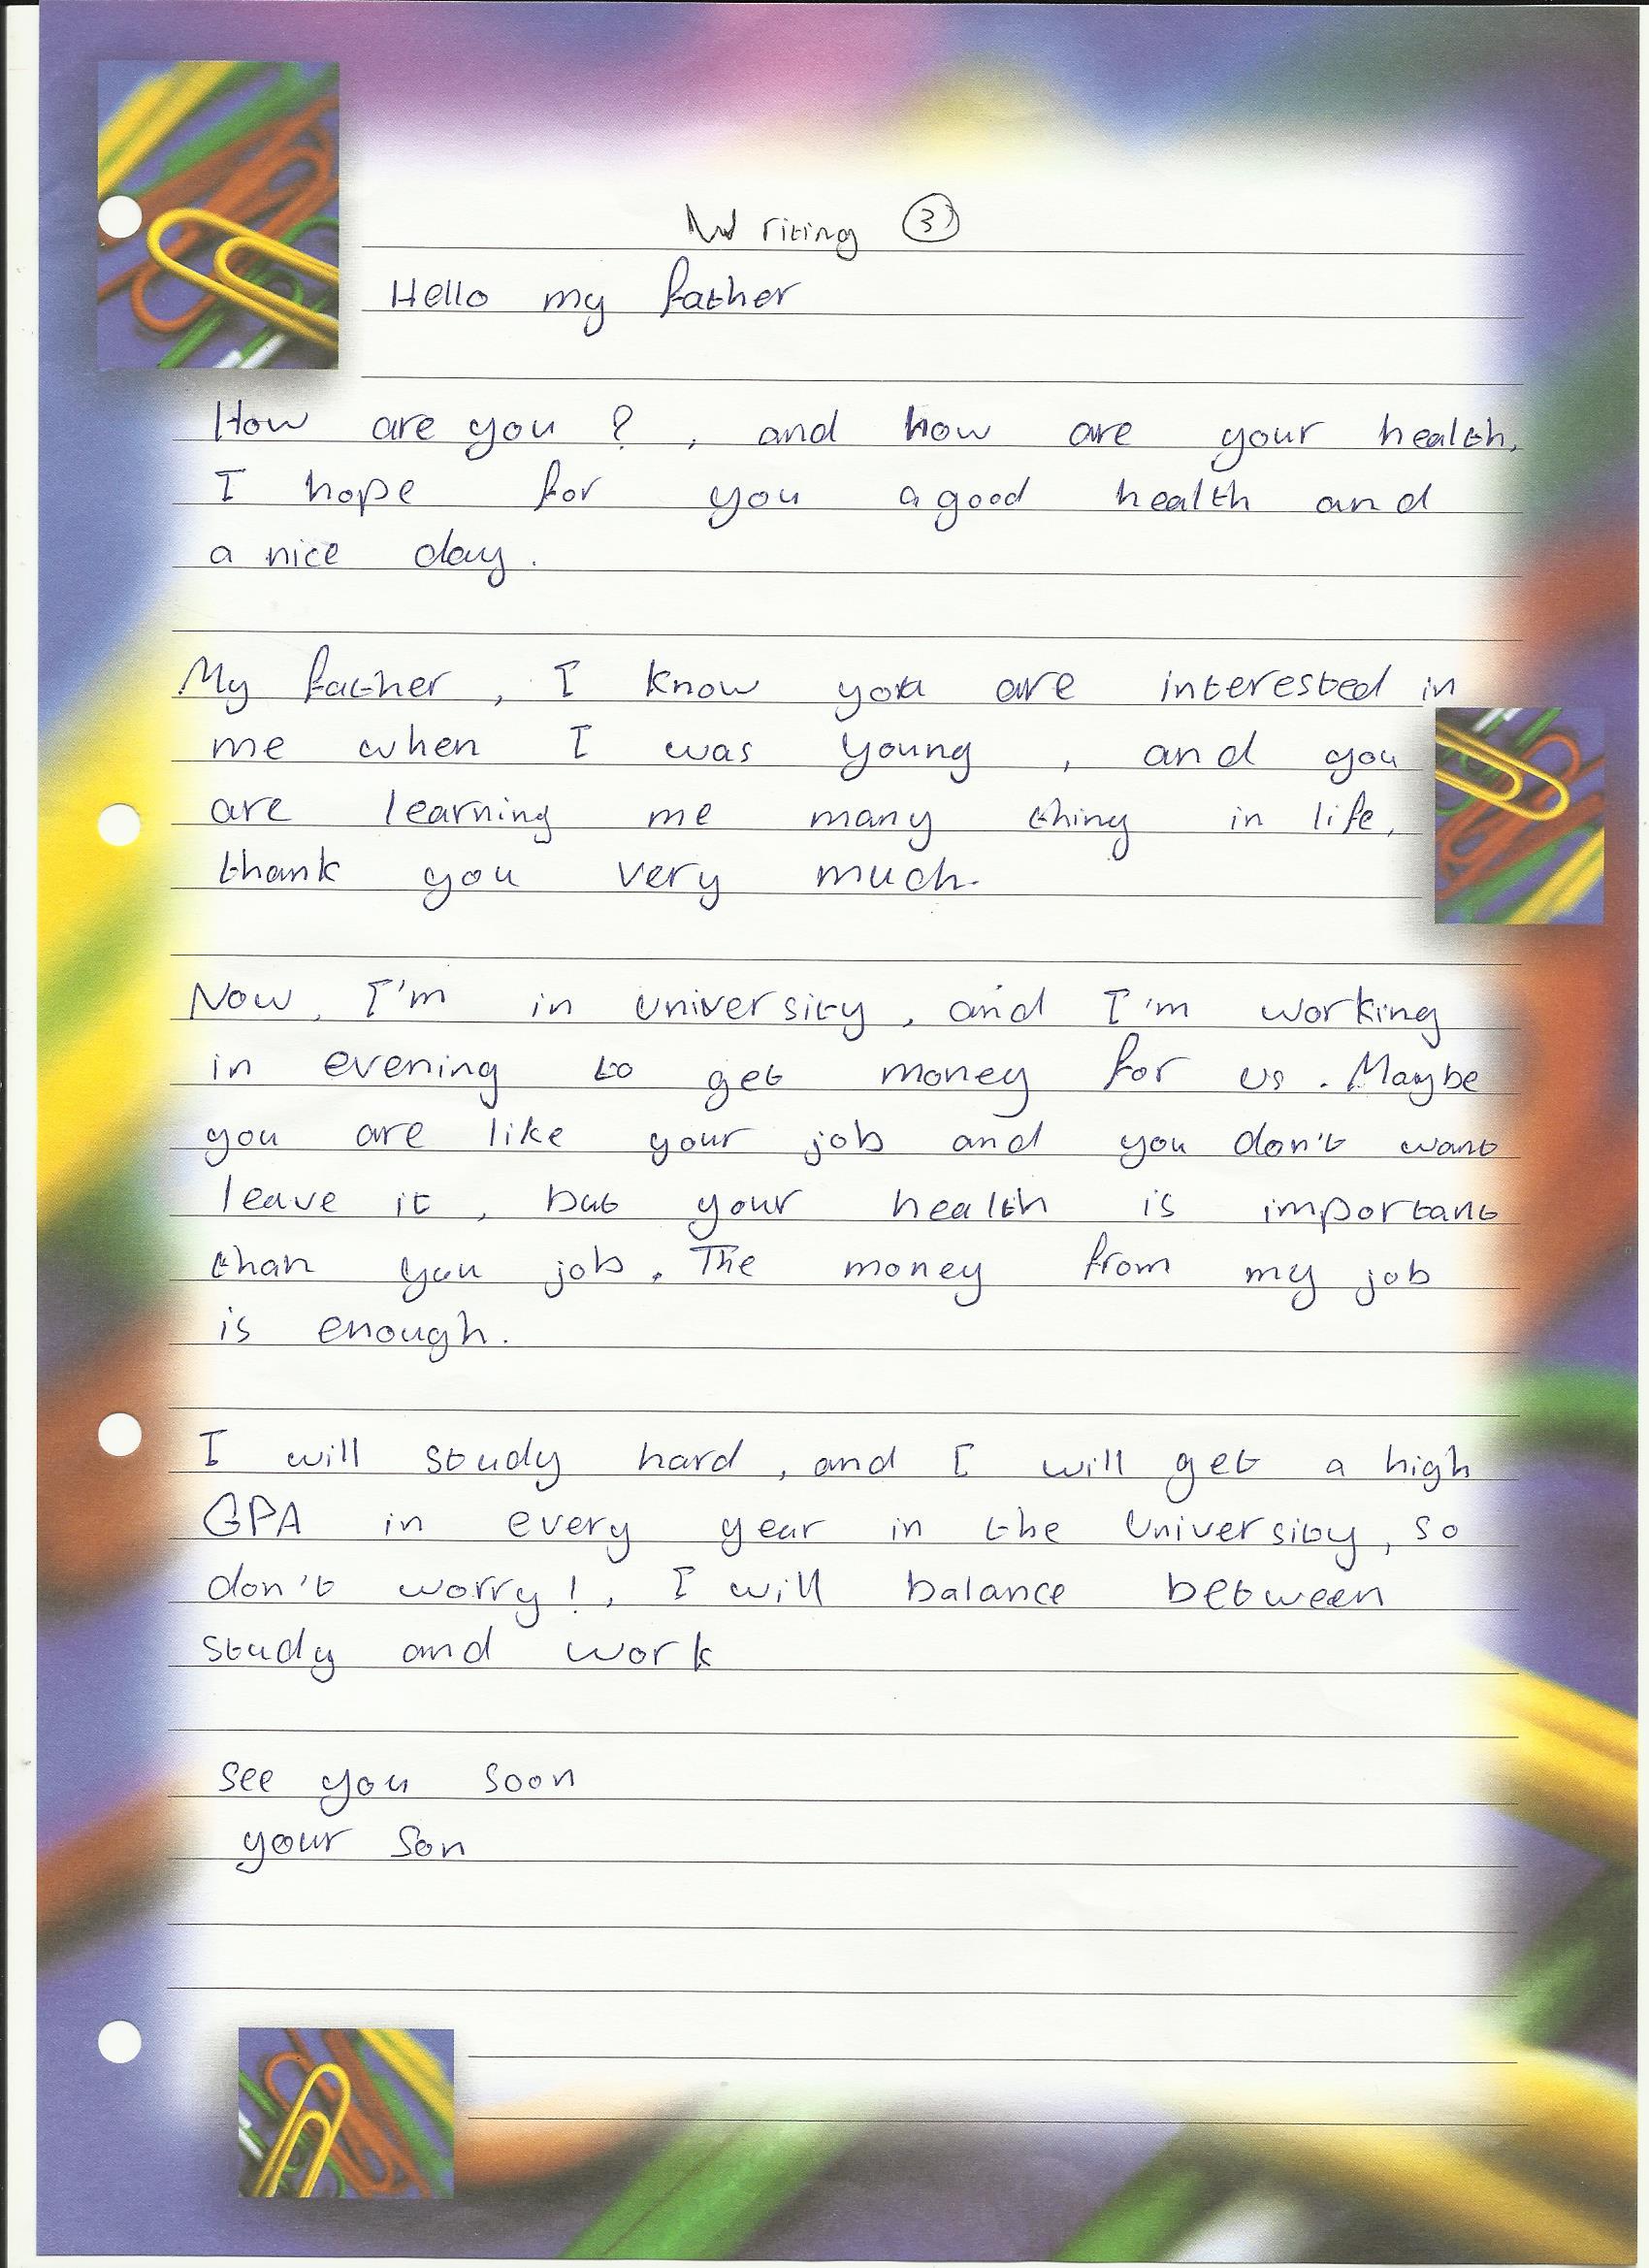 Writing 3
Hello my father
How are you ? , and how are your health,
I hope for you a good health and
a nice day.
My father, I know you are interested in
me when I was young, and you
are learning me many thing in life,
thank you very much.
Now, I'm in university, and I'm working
in evening to get money for us. Maybe
you are like your job and you don't want
leave it, but your health is important
than you job. The money from my job
is enough.
I will study hard, and I will get a high
GPA in every year in the University, so
don't worry!, I will balance between
study and work
see you soon
your son